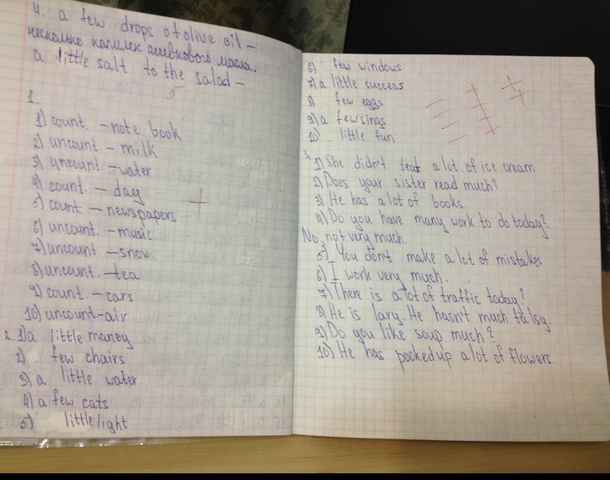 4. a few drops of olive oil –
несколько капилек оливкового масла.
a little salt to the salad –
5
1.
1) count. – note book
2) uncount – milk
3) uncount – water
4) count. – day
5) count – newspapers
6) uncount. – music
7) uncount – snow
8) uncount. – tea
9) count. – cars
10) uncount – air
2. 1) a little money
2) few chairs
3) a little water
4) a few cats
5) little light
6) few windows
7) a little success
8) few eggs
9) a few sings
10) little fun
3. 1) She didn't a lot of ice cream
2) Does your sister read much?
3) He has a lot of books.
4) Do you have many work to do today?
No, not very much.
5) You don't make a lot of mistakes.
6) I work very much.
7) There is a lot of traffic today?
8) He is lazy. He hasn't much to
9) Do you like soup much?
10) He has pocked up a lot of flowers.